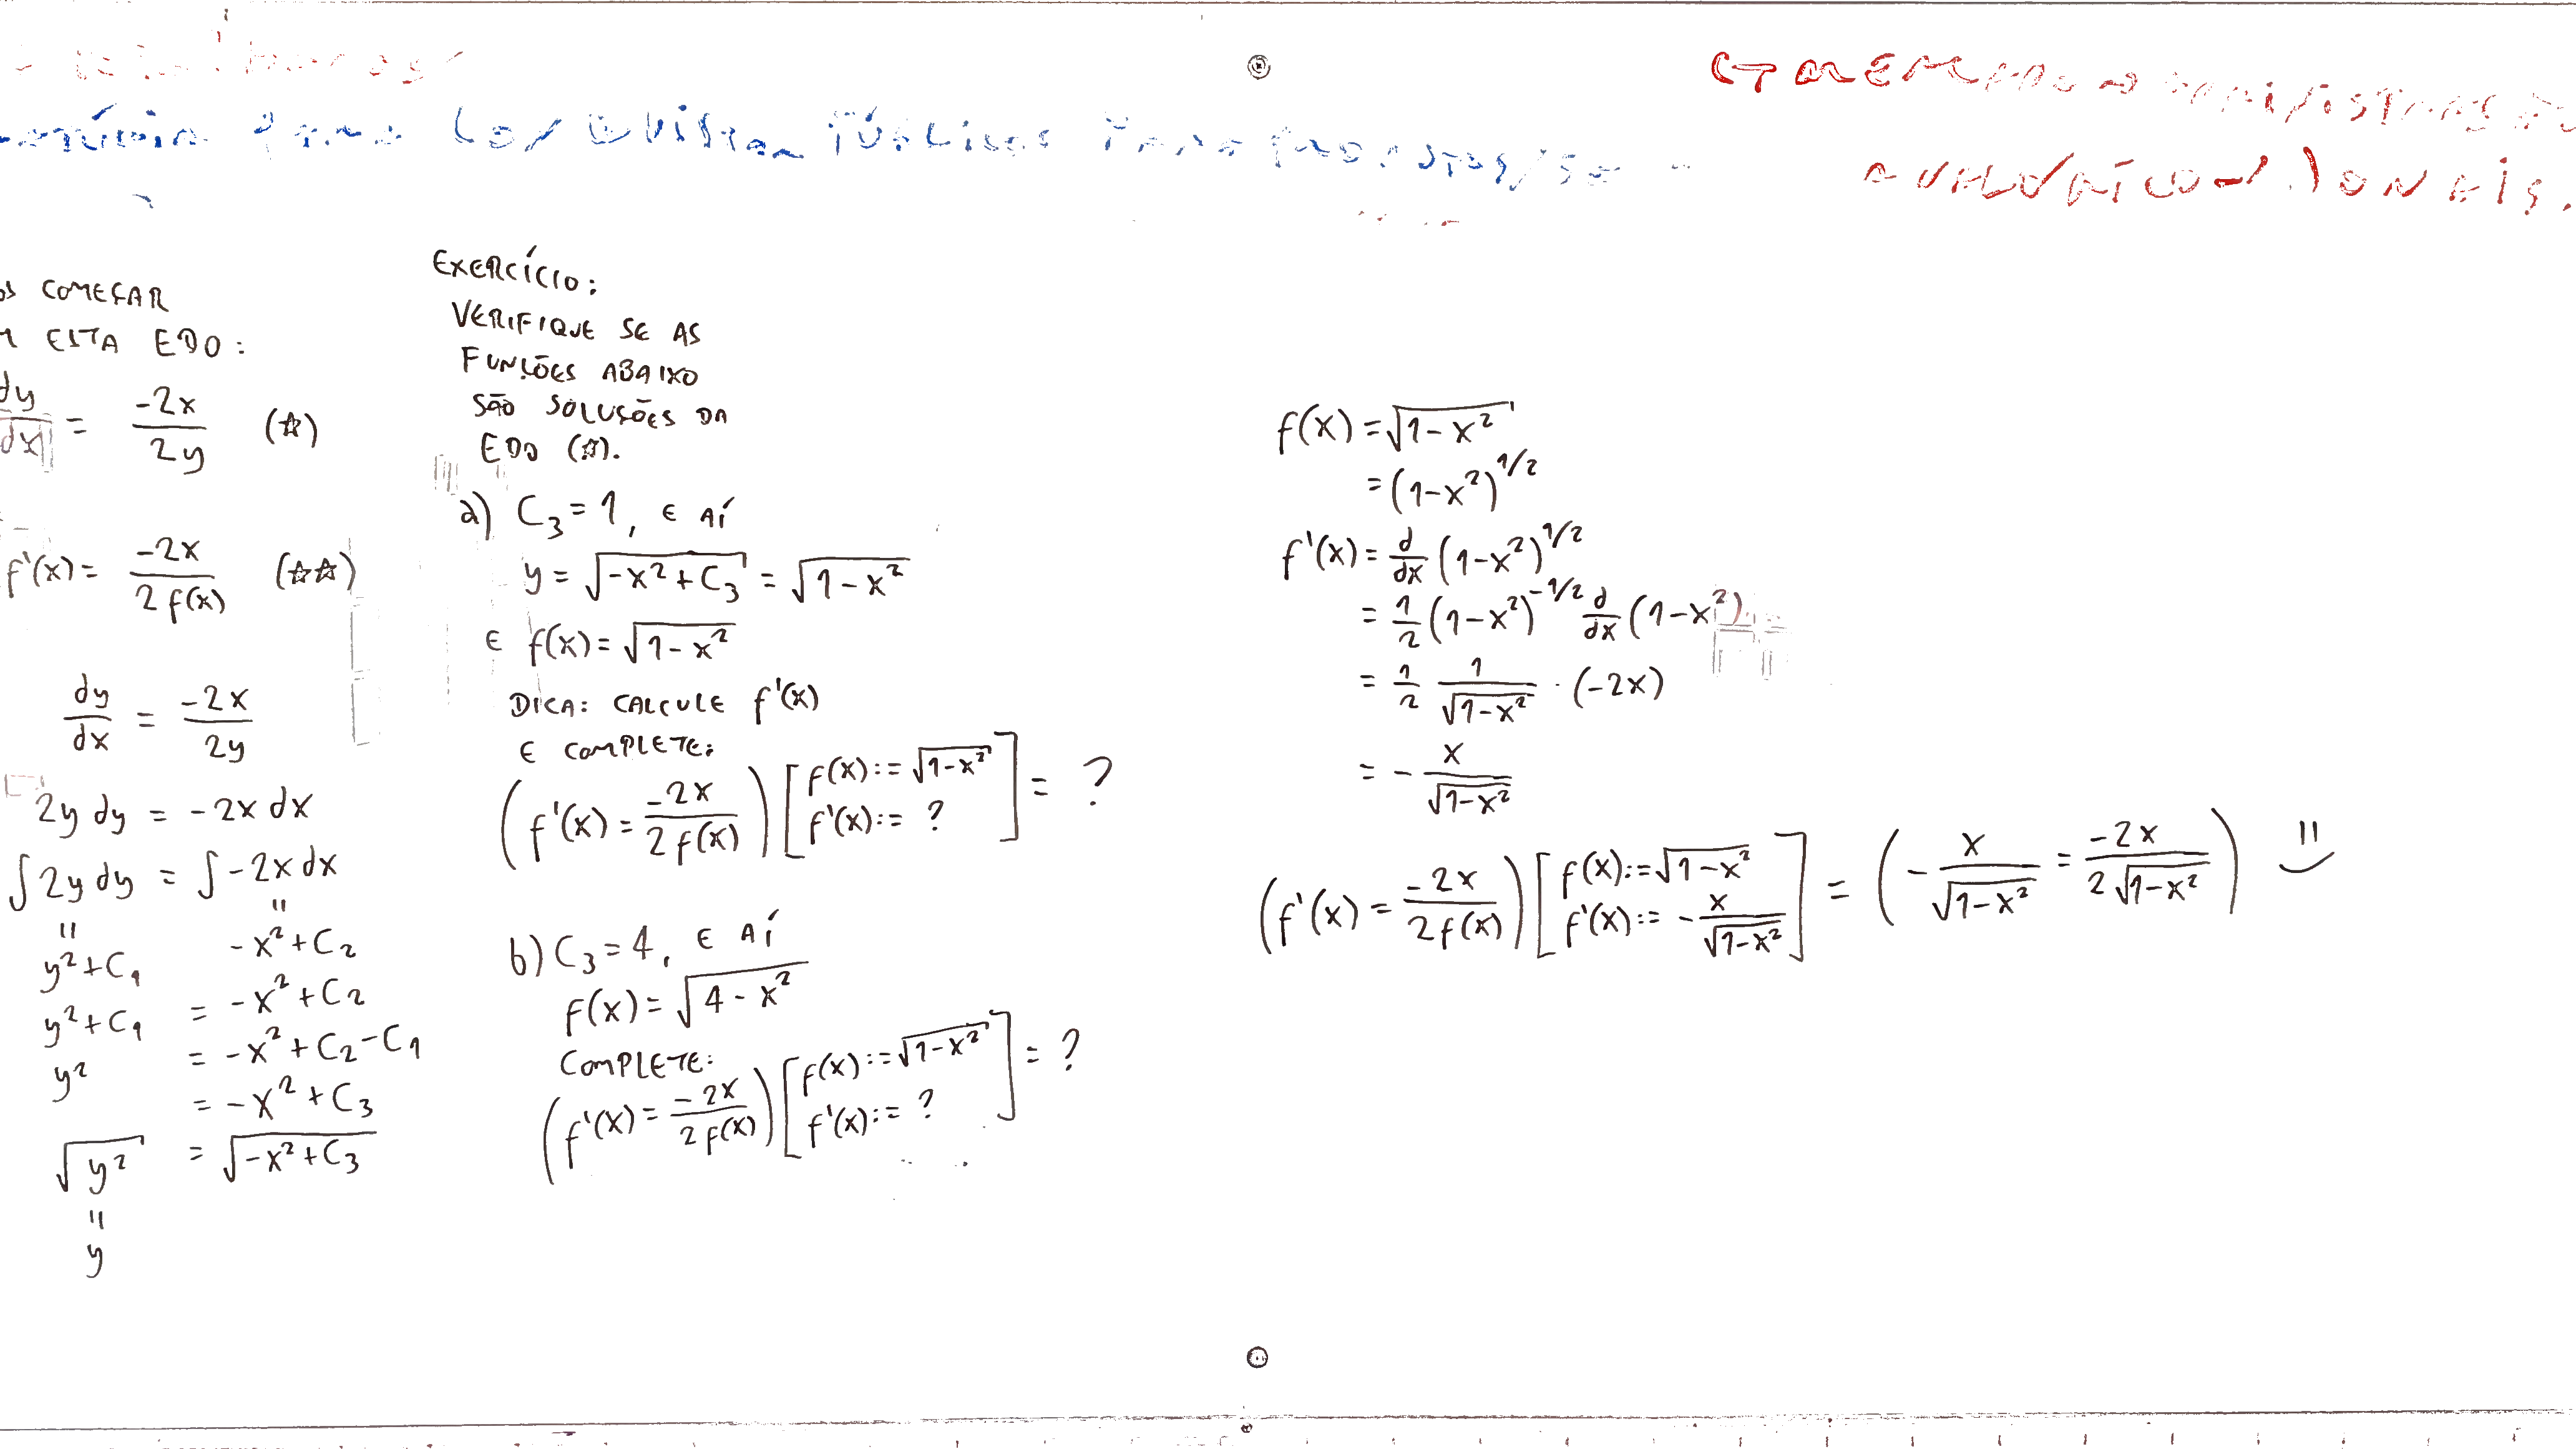 OS COMEÇAR
M ESTA EDO:
dy/dx = -2x/2y (☆)
f'(x) = -2x/2f(x) (☆☆)
dy/dx = -2x/2y
2y dy = -2x dx
∫2y dy = ∫-2x dx
" "
y²+C₁ -x²+C₂
y²+C₁ = -x²+C₂
y² = -x²+C₂-C₁
= -x²+C₃
√y² = √(-x²+C₃)
"
y
EXERCÍCIO:
VERIFIQUE SE AS
FUNÇÕES ABAIXO
SÃO SOLUÇÕES DA
EDO (☆).
a) C₃=1, E AÍ
y = √(-x²+C₃) = √(1-x²)
E f(x) = √(1-x²)
DICA: CALCULE f'(x)
E COMPLETE:
(f'(x) = -2x/2f(x)) [f(x):=√(1-x²) f'(x):= ?] = ?
b) C₃=4, E AÍ
f(x) = √(4-x²)
COMPLETE:
(f'(x) = -2x/2f(x)) [f(x):=√(1-x²) f'(x):= ?] = ?
f(x) = √(1-x²)
= (1-x²)^1/2
f'(x) = d/dx (1-x²)^1/2
= 1/2 (1-x²)^-1/2 d/dx (1-x²)
= 1/2 1/√(1-x²) · (-2x)
= - x/√(1-x²)
(f'(x) = -2x/2f(x)) [f(x):=√(1-x²) f'(x):= - x/√(1-x²)] = (- x/√(1-x²) = -2x/2√(1-x²))